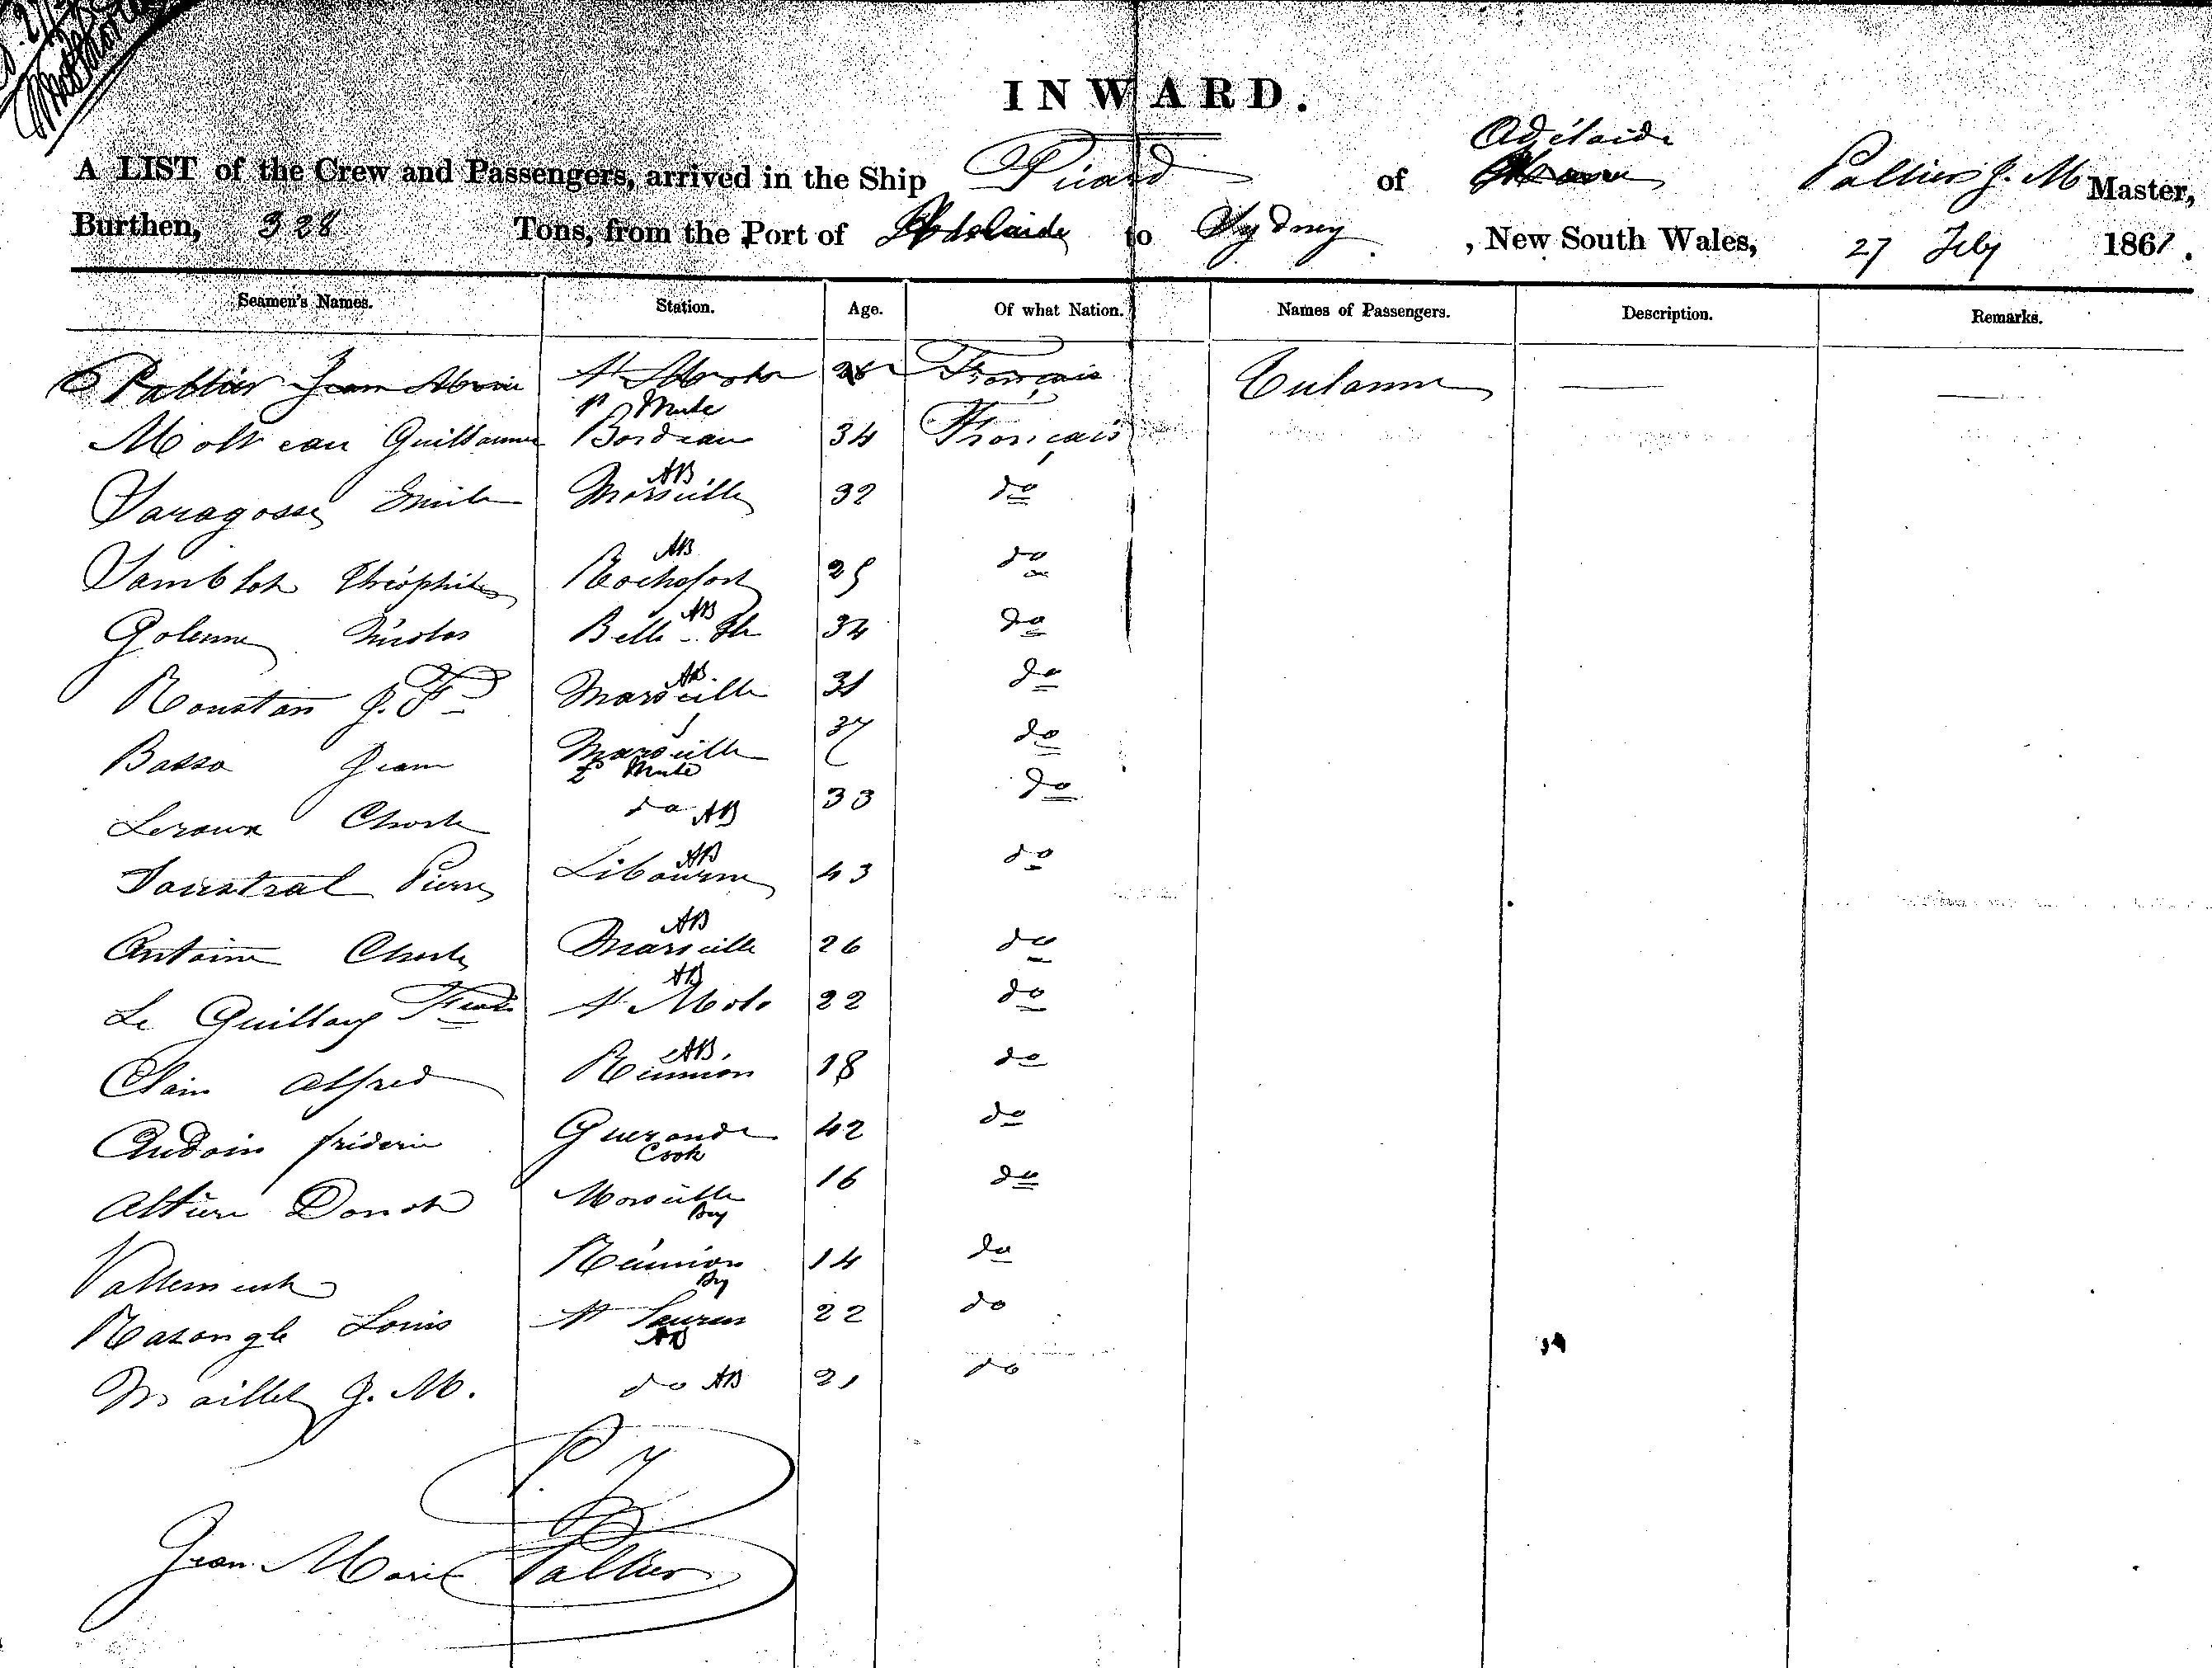 INWARD.
Adélaide
A LIST of the Crew and Passengers, arrived in the Ship Picard of Pallier J. M Master,
Burthen, 328 Tons, from the Port of Adelaide to Sydney , New South Wales, 27 July 1861.
Seamen's Names. Station. Age. Of what Nation. Names of Passengers. Description. Remarks.
Pallier Jean Marie Français
1st Mate
Guillaume Bordeau 34 Français
AB
Saragosse Emile Marseille 32 do
AB
Théophile Rochefort 25 do
AB
Nicolas Belle-Ile 34 do
AB
Roustan J. F. Marseille 31 do
Basso Jean Marseille 37 do
2d Mate
Leroux Charle do AB 33 do
AB
Pierre Libourne 43 do
AB
Antoine Charles Marseille 26 do
AB
Le Guillou St Malo 22 do
AB
Clain Alfred Réunion 18 do
Audoin fréderic Guerande 42 do
Cook
Donat Marseille 16 do
Boy
Réunion 14 do
Boy
Louis St 22 do
AB
Maillet J. M. do AB 21 do
Jean Marie Pallier